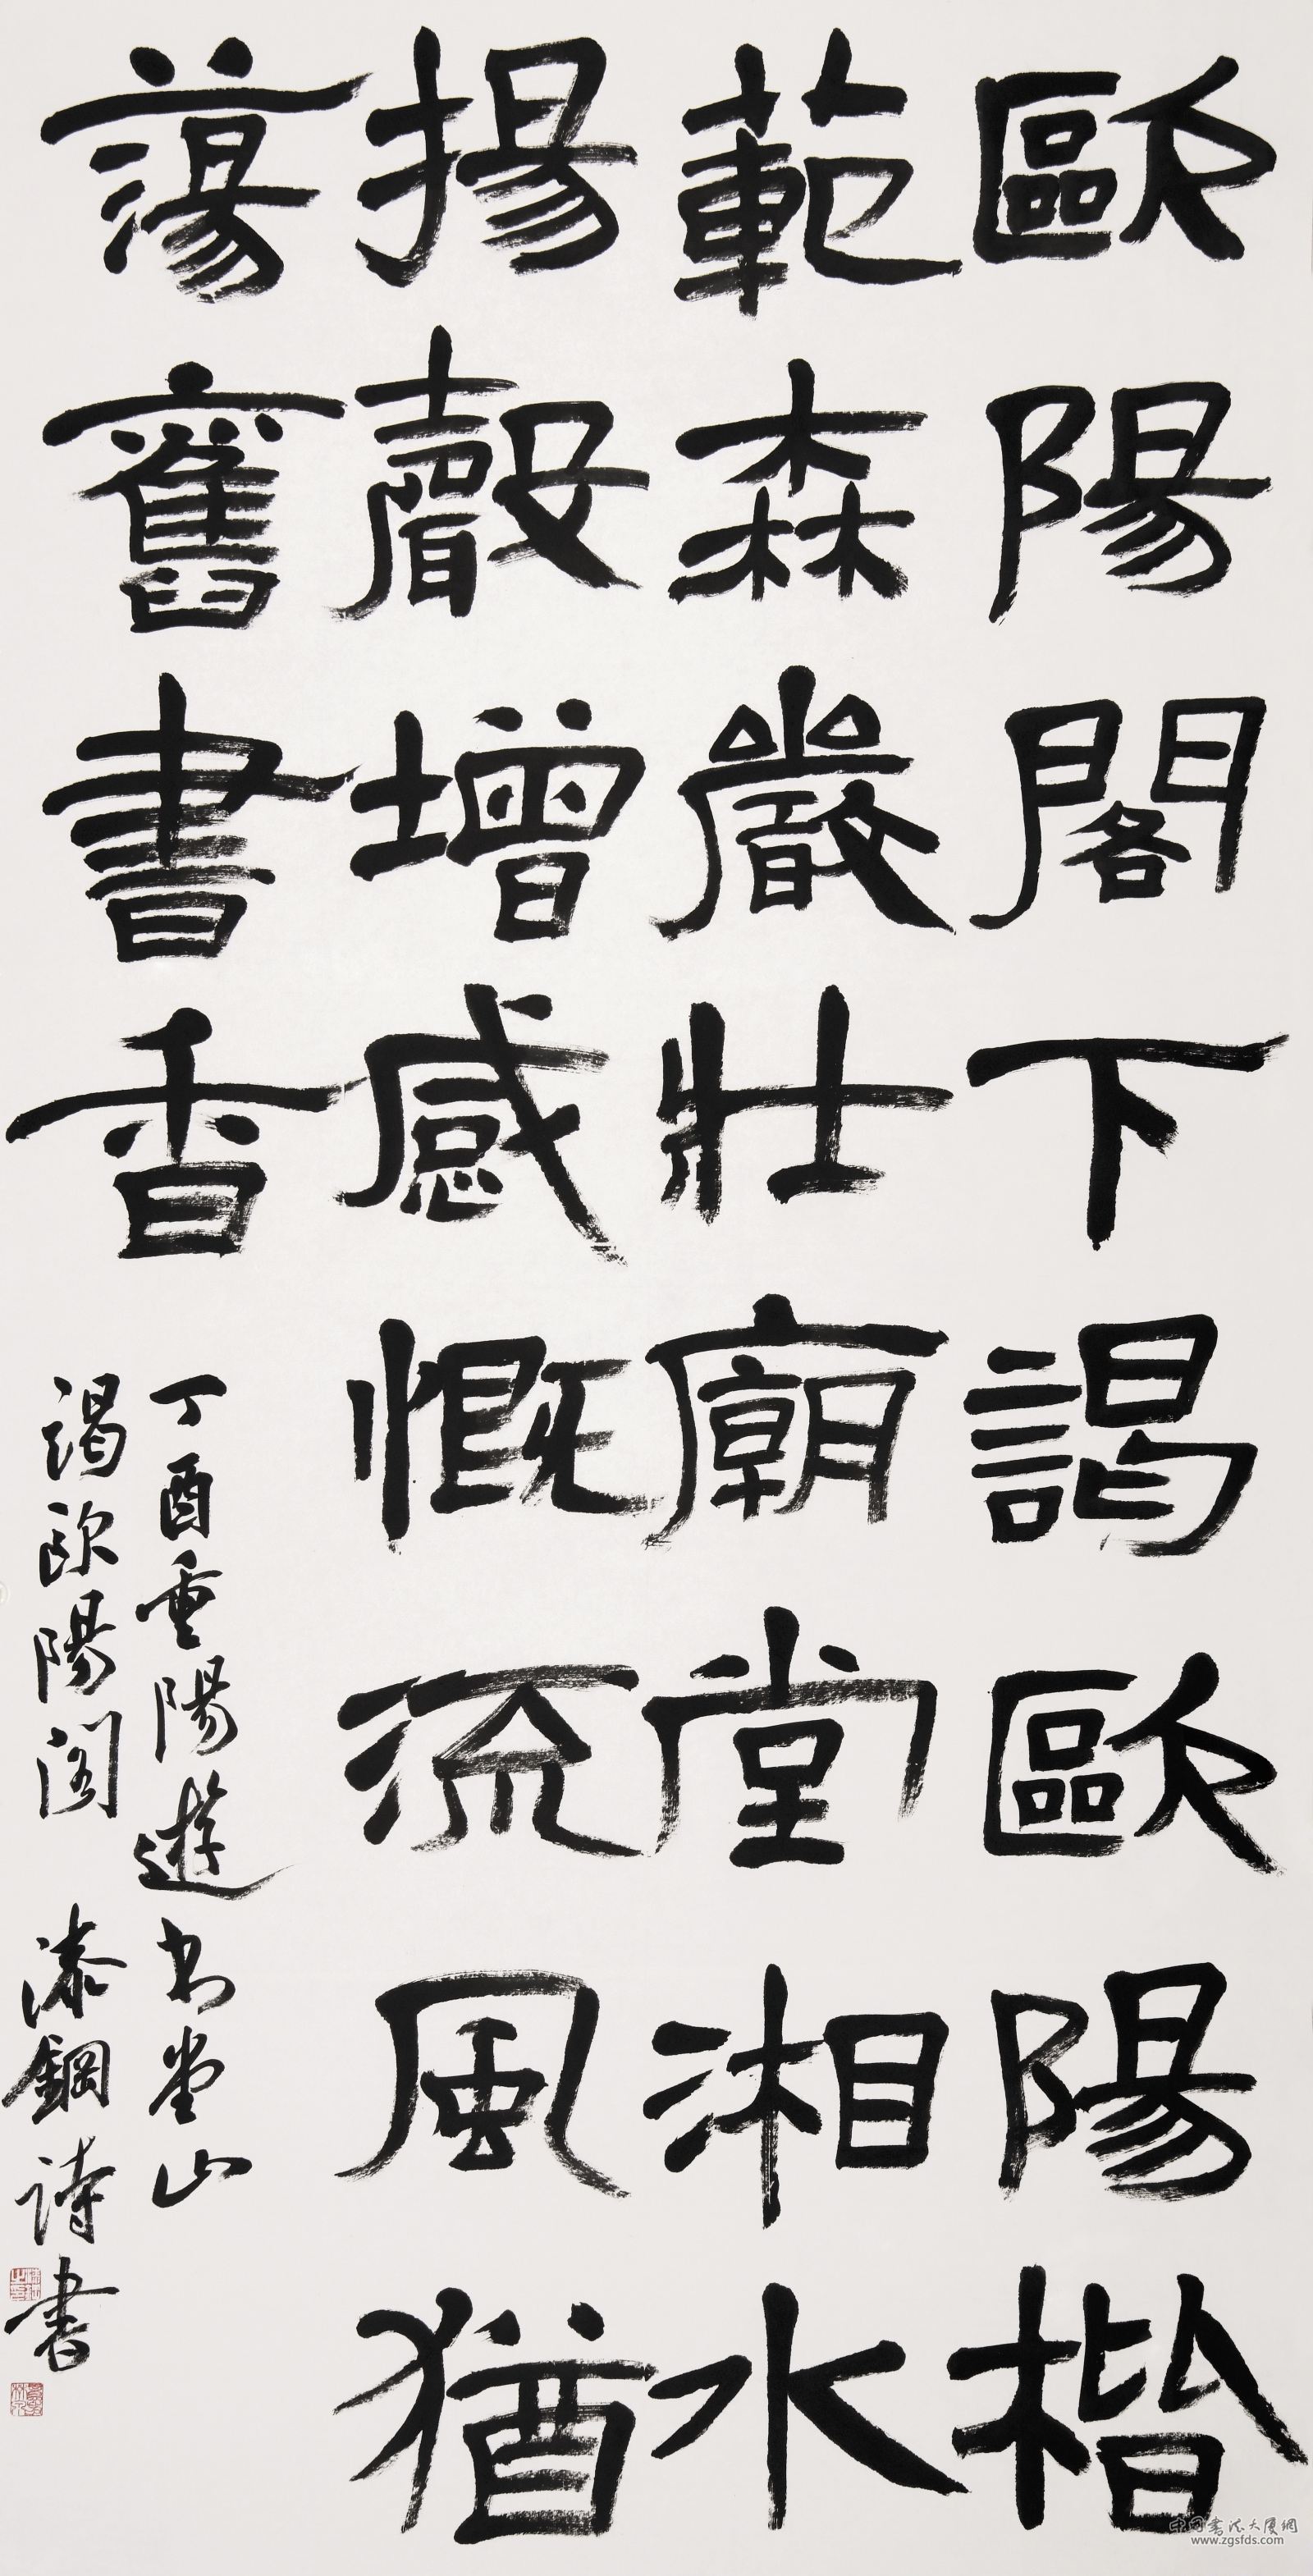 歐陽閣下謁歐陽楷
範森嚴壯廟堂湘水
揚聲增感慨流風猶
蕩舊書香
丁酉重陽遊书堂山
謁歐陽阁 漆鋼詩書
中国书法大厦網
www.zgsfds.com